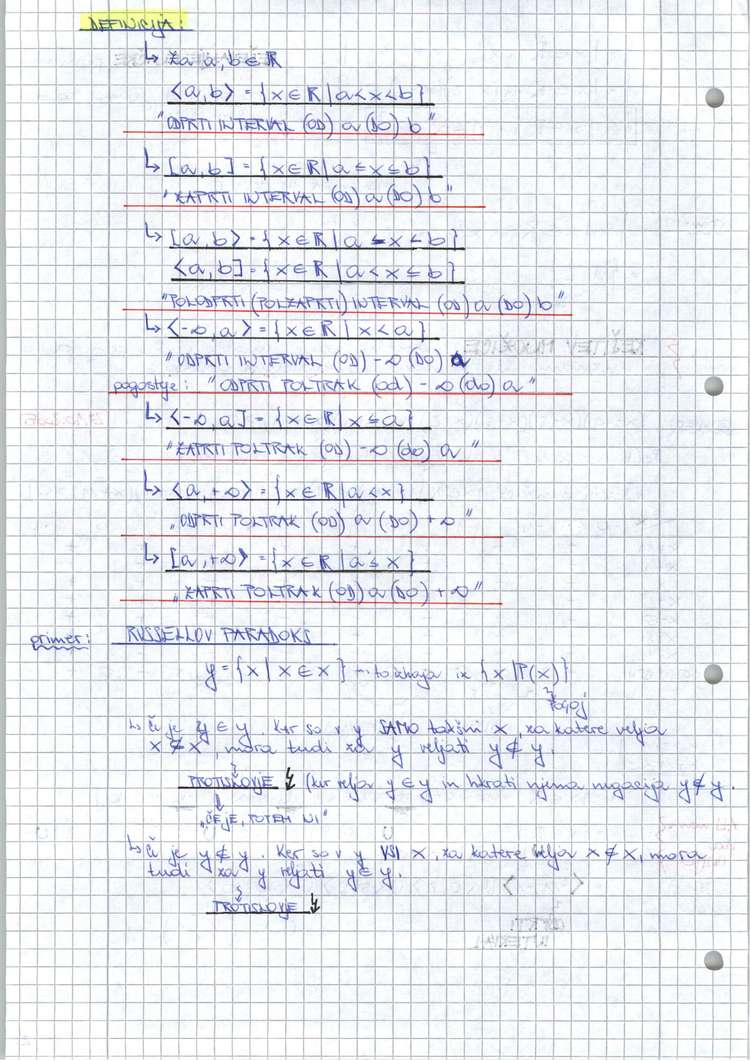 DEFINICIJA:
↳ Za a, b ∈ ℝ
<a, b> = {x ∈ ℝ | a < x < b}
"ODPRTI INTERVAL (OD) a (DO) b"
↳ [a, b] = {x ∈ ℝ | a ≤ x ≤ b}
"ZAPRTI INTERVAL (OD) a (DO) b"
↳ [a, b> = {x ∈ ℝ | a ≤ x < b}
<a, b] = {x ∈ ℝ | a < x ≤ b}
"POLODPRTI (POLZAPRTI) INTERVAL (OD) a (DO) b"
↳ <-∞, a> = {x ∈ ℝ | x < a}
"ODPRTI INTERVAL (OD) -∞ (DO) a
pogosteje: "ODPRTI POLTRAK (od) -∞ (do) a"
↳ <-∞, a] = {x ∈ ℝ | x ≤ a}
"ZAPRTI POLTRAK (OD) -∞ (do) a"
↳ <a, +∞> = {x ∈ ℝ | a < x}
"ODPRTI POLTRAK (OD) a (DO) +∞"
↳ [a, +∞> = {x ∈ ℝ | a ≤ x}
"ZAPRTI POLTRAK (OD) a (DO) +∞"
primer: RUSSELLOV PARADOKS
y = {x | x ∈ x} izhaja iz {x | P(x)}
POGOJ
↳ če je y ∈ y. Ker so v y SAMO takšni x, za katere velja
x ∉ x, mora tudi za y veljati y ∉ y.
PROTISLOVJE ↯ (ker velja y ∈ y in hkrati njema negacija y ∉ y.
"ČE JE, POTEM NI"
↳ če je y ∉ y. Ker so v y VSI x, za katere velja x ∉ x, mora
tudi za y veljati y ∈ y.
PROTISLOVJE ↯